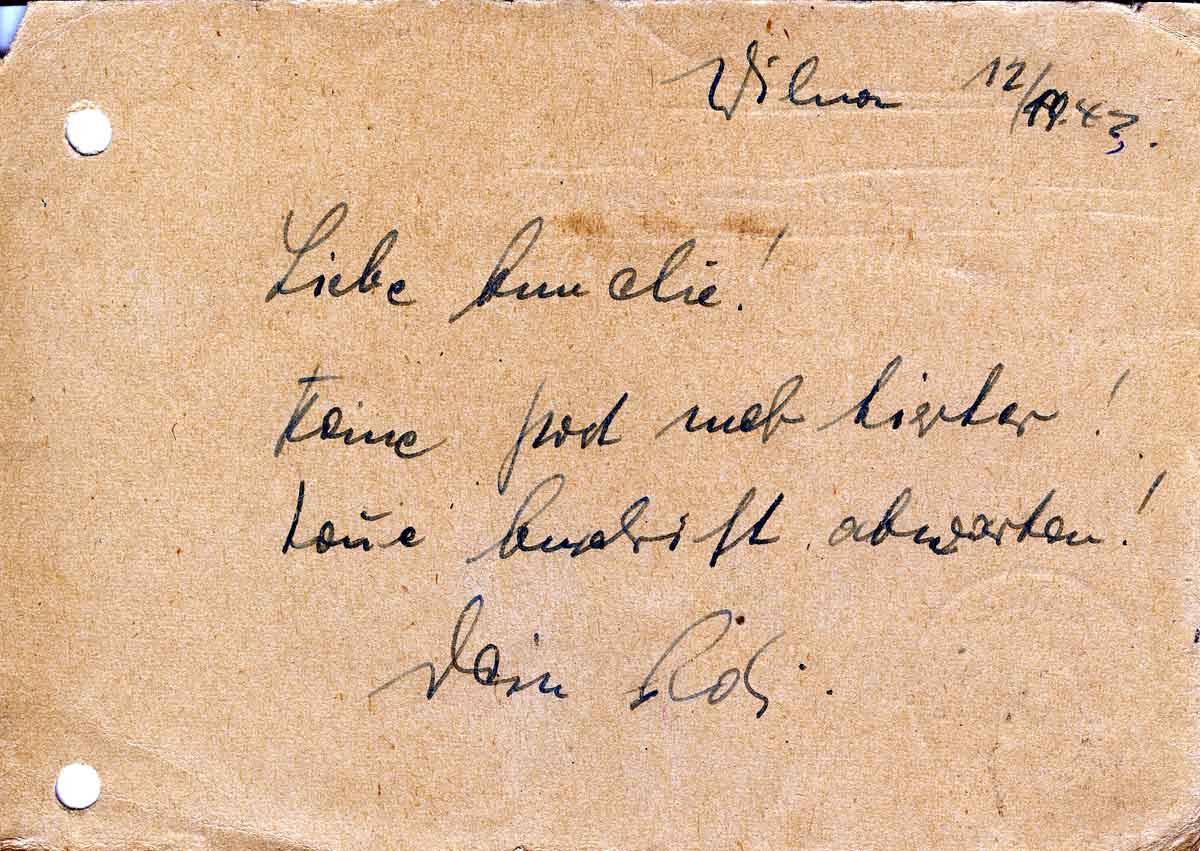 Wilna 12/ 43.
Liebe Annelie!
Keine post mehr hierher!
Neue Anschrift abwarten!
Dein Adi.